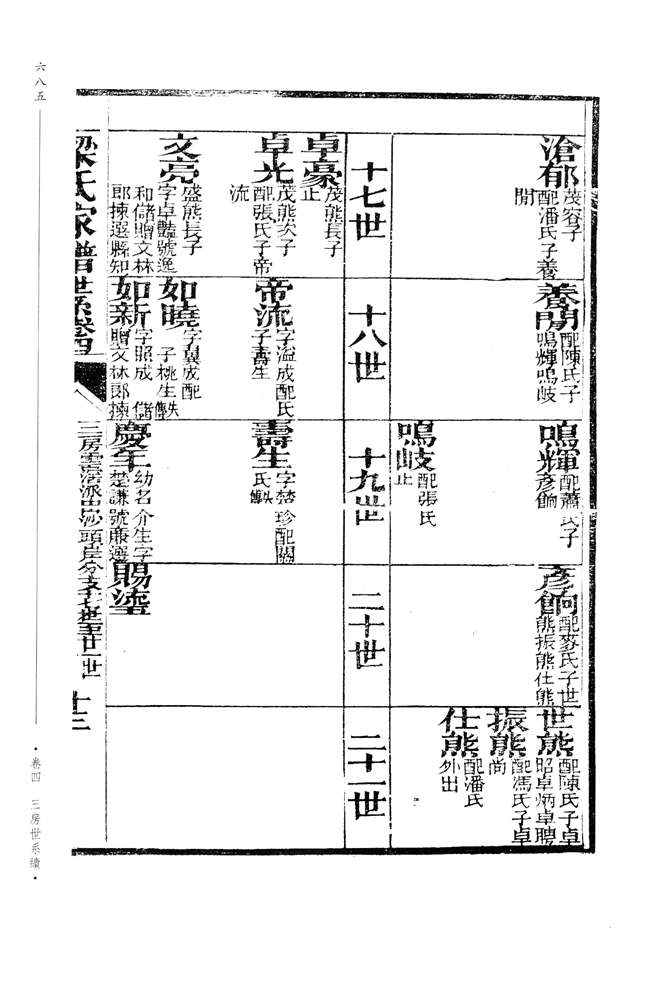 滄郁 茂容子
配潘氏子養
閒
養閒 配陳氏子
鳴輝鳴岐
鳴輝 配蕭氏子
彥餉
鳴岐 配張氏
止
彥餉 配麥氏子世
熊振熊仕熊
世熊 配陳氏子卓
昭卓炳卓聘
振熊 配馮氏子卓
尚
仕熊 配潘氏
外出
十七世
十八世
十九世
二十世
二十一世
卓豪 茂熊長子
止
卓光 茂熊次子
配張氏子帝
流
文亮 盛熊長子
字卓豔號逸
和儲贈文林
郎揀選縣知
帝流 字溢成配氏
子壽生
如曉 字翼成配
子桃生
如新 字照成 儲
贈文林郎揀
壽生 字楚珍配關
氏
慶年 幼名介生字
楚謙號廉選
賜鎏
梁氏家譜世系卷四
三房雲滘派
十三
六八五
·卷四 三房世系續·